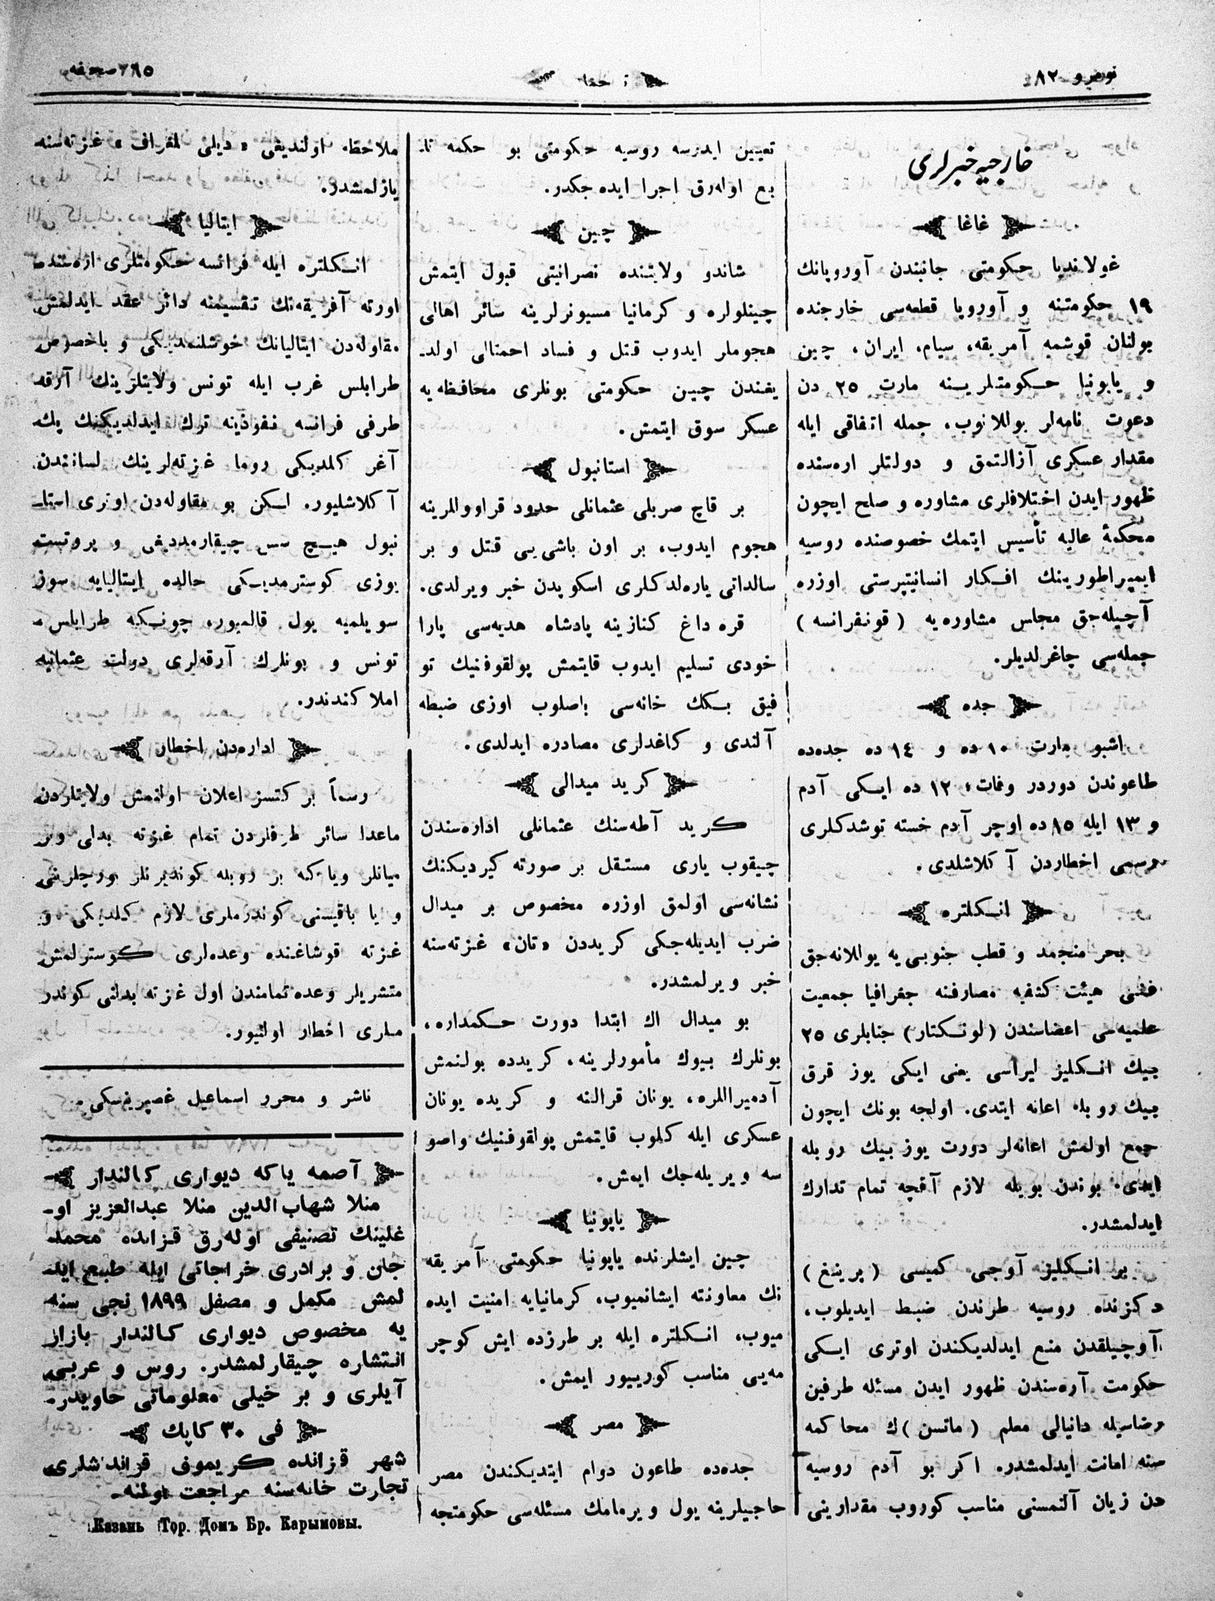 نومرو ٨٢
٢٦٥ صحيفه
خارجيه خبرلری
غاغا
غولاندیا حکومتی جانبندن آوروپانك
١٩ حکومتنه و آوروپا قطعه‌سی خارجنده
بولنان قوشمه آمریقه، سیام، ایران، چین
و یاپونیا حکومتلرینه مارت ٢٥ دن
دعوت نامه‌لر یوللانوب، جمله اتفاقی ایله
مقدار عسکری آزالتمق و دولتلر اره‌سنده
ظهور ایدن اختلافلری مشاوره و صلح ایچون
محکمۀ عالیه تأسیس ایتمك خصوصنده روسیه
ایمپراطورینك افکار انسانیتپرستی اوزره
آچیله‌جق مجلس مشاوره یه ( قونفرانسه )
جمله‌سی چاغرلدیلر.
جده
اشبو مارت ١٠ ده و ١٤ ده جده‌ده
طاعوندن دوردر وفات، ١٢ ده ایکی آدم
و ١٣ ایله ١٥ ده اوچر آدم خسته توشدکلری
رسمی اخطاردن آکلاشلدی.
انکلتره
بحر منجمد و قطب جنوبی یه یوللانه‌جق
فنی هیئت کشفیه مصارفنه جغرافیا جمعیت
علمیه‌سی اعضاسندن (لونکتار) جنابلری ٢٥
بیك انکلیز لیراسی یعنی ایکی یوز قرق
بیك روبله اعانه ایتدی. اولجه بونك ایچون
جمع اولمش اعانه‌لر دورت یوز بیك روبله
ایدی. بوندن بویله لازم آقچه تمام تدارك
ایدلمشدر.
بر انکلیز آوجی کمیسی ( پرینغ )
دکزنده روسیه طرندن ضبط ایدیلوب،
آوچیلقدن منع ایدلدیکندن اوتری ایکی
حکومت آره‌سندن ظهور ایدن مسئله طرفین
رضاسیله دانیالی معلم ( ماتسن )ك محاکمه
سنه امانت ایدلمشدر. اکر بو آدم روسیه
دن زیان آلنمسنی مناسب کوروب مقدارینی
تعیین ایدرسه روسیه حکومتی بو حکمه تا
بع اوله‌رق اجرا ایده‌جکدر.
چین
شاندو ولایتنده نصرانیتی قبول ایتمش
چینلولره و کرمانیا مسیونرلرینه سائر اهالی
هجوملر ایدوب قتل و فساد احتمالی اولد
یغندن چین حکومتی بونلری محافظه یه
عسکر سوق ایتمش.
استانبول
بر قاچ صربلی عثمانلی حدود قراووللرینه
هجوم ایدوب، بر اون باشی یی قتل و بر
سالداتی یاره‌لدکلری اسکوبدن خبر ویرلدی.
قره داغ کنازینه پادشاه هدیه‌سی پارا
خودی تسلیم ایدوب قایتمش پولقوفنیك تو
فیق بكك خانه‌سی باصلوب اوزی ضبطه
آلندی و کاغدلری مصادره ایدلدی.
کرید میدالی
کرید آطه‌سنك عثمانلی اداره‌سندن
چیقوب یاری مستقل بر صورته کیردیکنك
نشانه‌سی اولمق اوزره مخصوص بر میدال
ضرب ایدیله‌جکی کریددن «تان» غزته‌سنه
خبر ویرلمشدر.
بو میدال اك ابتدا دورت حکمداره،
بونلرك بیوك مأمورلرینه، کریدده بولنمش
آدمیراللره، یونان قرالنه و کریده یونان
عسکری ایله کلوب قایتمش پولقوفنیك واصو
سه ویریله‌جك ایمش.
یاپونیا
چین ایشلرنده یاپونیا حکومتی آمریقه
نك معاونته ایشانمیوب، کرمانیایه امنیت ایده
میوب، انکلتره ایله بر طرزده ایش کوچر
مه‌یی مناسب کوریبور ایمش.
مصر
جده‌ده طاعون دوام ایتدیکندن مصر
حاجیلرینه یول ویرمامك مسئله‌سی حکومتجه
ملاحظه اولندیغی «دیلی تلغراف» غزته‌سنه
یازلمشدر.
ایتالیا
انکلتره ایله فرانسه حکومتلری اره‌سنده
اورته آفریقه‌نك تقسیمنه دائر عقد ایدلمش
مقاوله‌دن ایتالیانك خوشلنمدیکی و باخصوص
طرابلس غرب ایله تونس ولایتلرینك آرقه
طرفی فرانسه نفوذینه ترك ایدلدیکنك پك
آغر کلدیکی روما غزته‌لرینك لسانندن
آکلاشلیور. لسکن بو مقاوله‌دن اوتری استا
نبول هیچ سس چیقارمدیغی و پروتست
یوزی کوسترمدیکی حالده ایتالیایه سوز
سویلمیه یول قالمیور، چونکه طرابلس
تونس و بونلرك آرقه‌لری دولت عثمانیه
املاکندندر.
اداره‌دن اخطار
رسماً بر کتسز اعلان اولنمش ولایتلردن
ماعدا سائر طرفلردن تمام غزته بدلی ویر
میانلر ویاکه بر روبله کوندیرنلر بورچلرینی
و یا باقیسنی کوندرملری لازم کلدیکی و
غزته قوشاغنده وعده‌لری کوسترلمش
مشتریلر وعده تمامندن اول غزته بدلنی کوندر
ملری اخطار اولنیور.
ناشر و محرر اسماعیل غصپرینسکی.
آصمه یاکه دیواری کالندار
منلا شهاب‌الدین منلا عبدالعزیز او
غلینك تصنیفی اوله‌رق قزانده محمد
جان و برادری خراجاتی ایله طبع اید
لمش مکمل و مصفل ١٨٩٩ نجی سنه
یه مخصوص دیواری کالندار بازار
انتشاره چیقارلمشدر. روس و عربی
آیلری و بر خیلی معلوماتی حاویدر.
فی ٣٠ کاپك
شهر قزانده کریموف قرانداشلری
تجارت خانه‌سنه مراجعت اولنه.
Казань Тор. Домъ Бр. Каримовы.